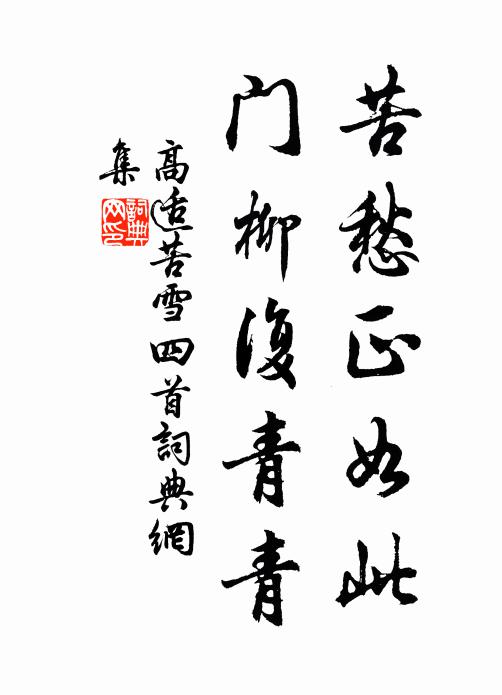 苦愁正如此
门柳復青青
高适苦雪四首詞典網
集
詞典
网印